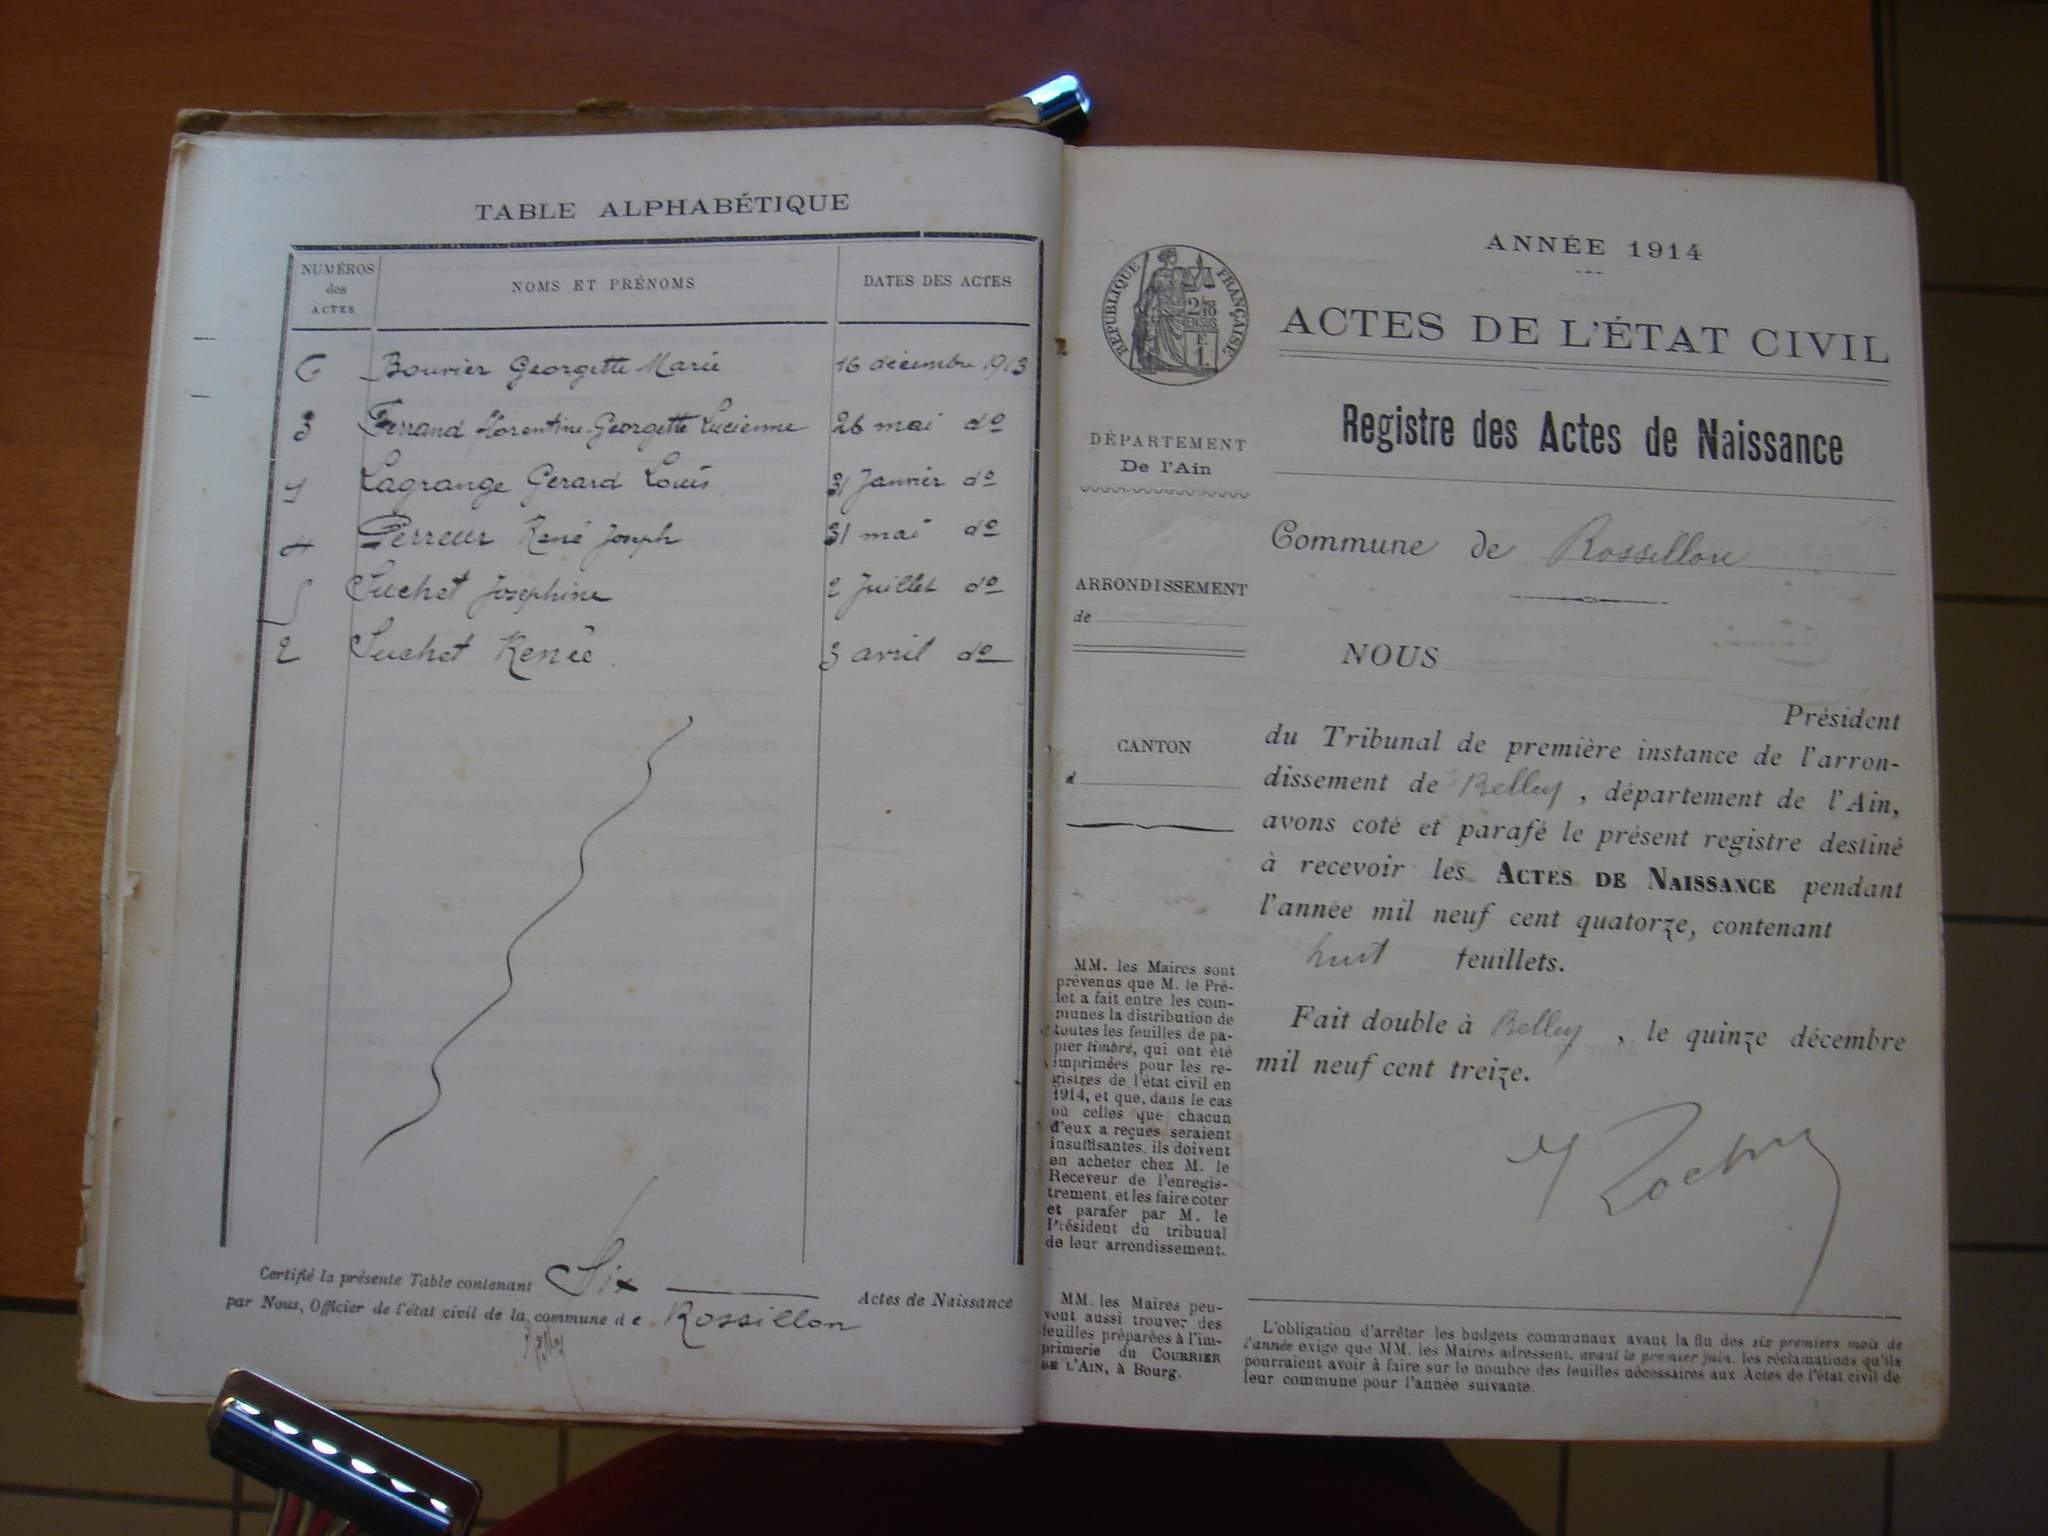 TABLE ALPHABÉTIQUE
NUMÉROS des ACTES NOMS ET PRÉNOMS DATES DES ACTES
6 Bouvier Georgette Marie 16 décembre 1913
3 Ferrand Florentine-Georgette Lucienne 26 mai do
1 Lagrange Gérard Louis 31 Janvier do
4 Perreur René Joseph 31 mai do
5 Suchet Joséphine 2 Juillet do
2 Suchet Renée 3 avril do
Certifié la présente Table contenant Six Actes de Naissance
par Nous, Officier de l'état civil de la commune de Rossillon
ANNÉE 1914
RÉPUBLIQUE FRANÇAISE
ACTES DE L'ÉTAT CIVIL
Registre des Actes de Naissance
DÉPARTEMENT
De l'Ain
Commune de Rossillon
ARRONDISSEMENT
de
NOUS
Président
du Tribunal de première instance de l'arron-
dissement de Belley, département de l'Ain,
avons coté et parafé le présent registre destiné
à recevoir les ACTES DE NAISSANCE pendant
l'année mil neuf cent quatorze, contenant
huit feuillets.
Fait double à Belley, le quinze décembre
mil neuf cent treize.
CANTON
d
MM. les Maires sont
prévenus que M. le Pré-
fet a fait entre les com-
munes la distribution de
toutes les feuilles de pa-
pier timbré, qui ont été
imprimées pour les re-
gistres de l'état civil en
1914, et que, dans le cas
où celles que chacun
d'eux a reçues seraient
insuffisantes, ils doivent
en acheter chez M. le
Receveur de l'enregis-
trement et les faire coter
et parafer par M. le
Président du tribunal
de leur arrondissement.
MM. les Maires peu-
vent aussi trouver des
feuilles préparées à l'im-
primerie du COURRIER
DE L'AIN, à Bourg.
L'obligation d'arrêter les budgets communaux avant la fin des six premiers mois de
l'année exige que MM. les Maires adressent, avant le premier juin, les réclamations qu'ils
pourraient avoir à faire sur le nombre des feuilles nécessaires aux Actes de l'état civil de
leur commune pour l'année suivante.